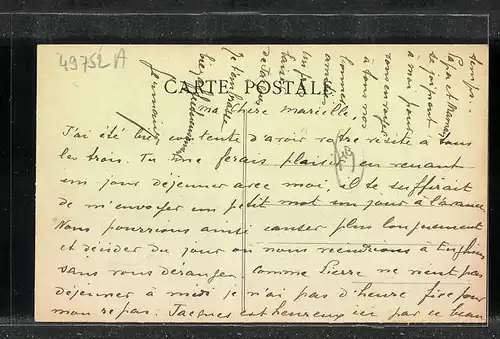 49752 A
CARTE POSTALE
ma chère Marcelle
J'ai été très contente d'avoir votre visite à tous
les trois. Tu me ferais plaisir en venant
un jour déjeuner avec moi, il te suffirait
de m'envoyer un petit mot un jour à l'avance
Nous pourrions ainsi causer plus longuement
et décider du jour où nous viendrions à Enghien
sans vous déranger. Comme Pierre ne vient pas
déjeuner à midi je n'ai pas d'heure fixe pour
mon repas. Jacques est heureux ici par ce beau
temps.
Papa et Maman
se joignent
à moi pour
vous envoyer
à tous nos
bonnes
amitiés
un gros
baiser
de Jacques
Je t'embrasse
bien affectueusement
Germaine